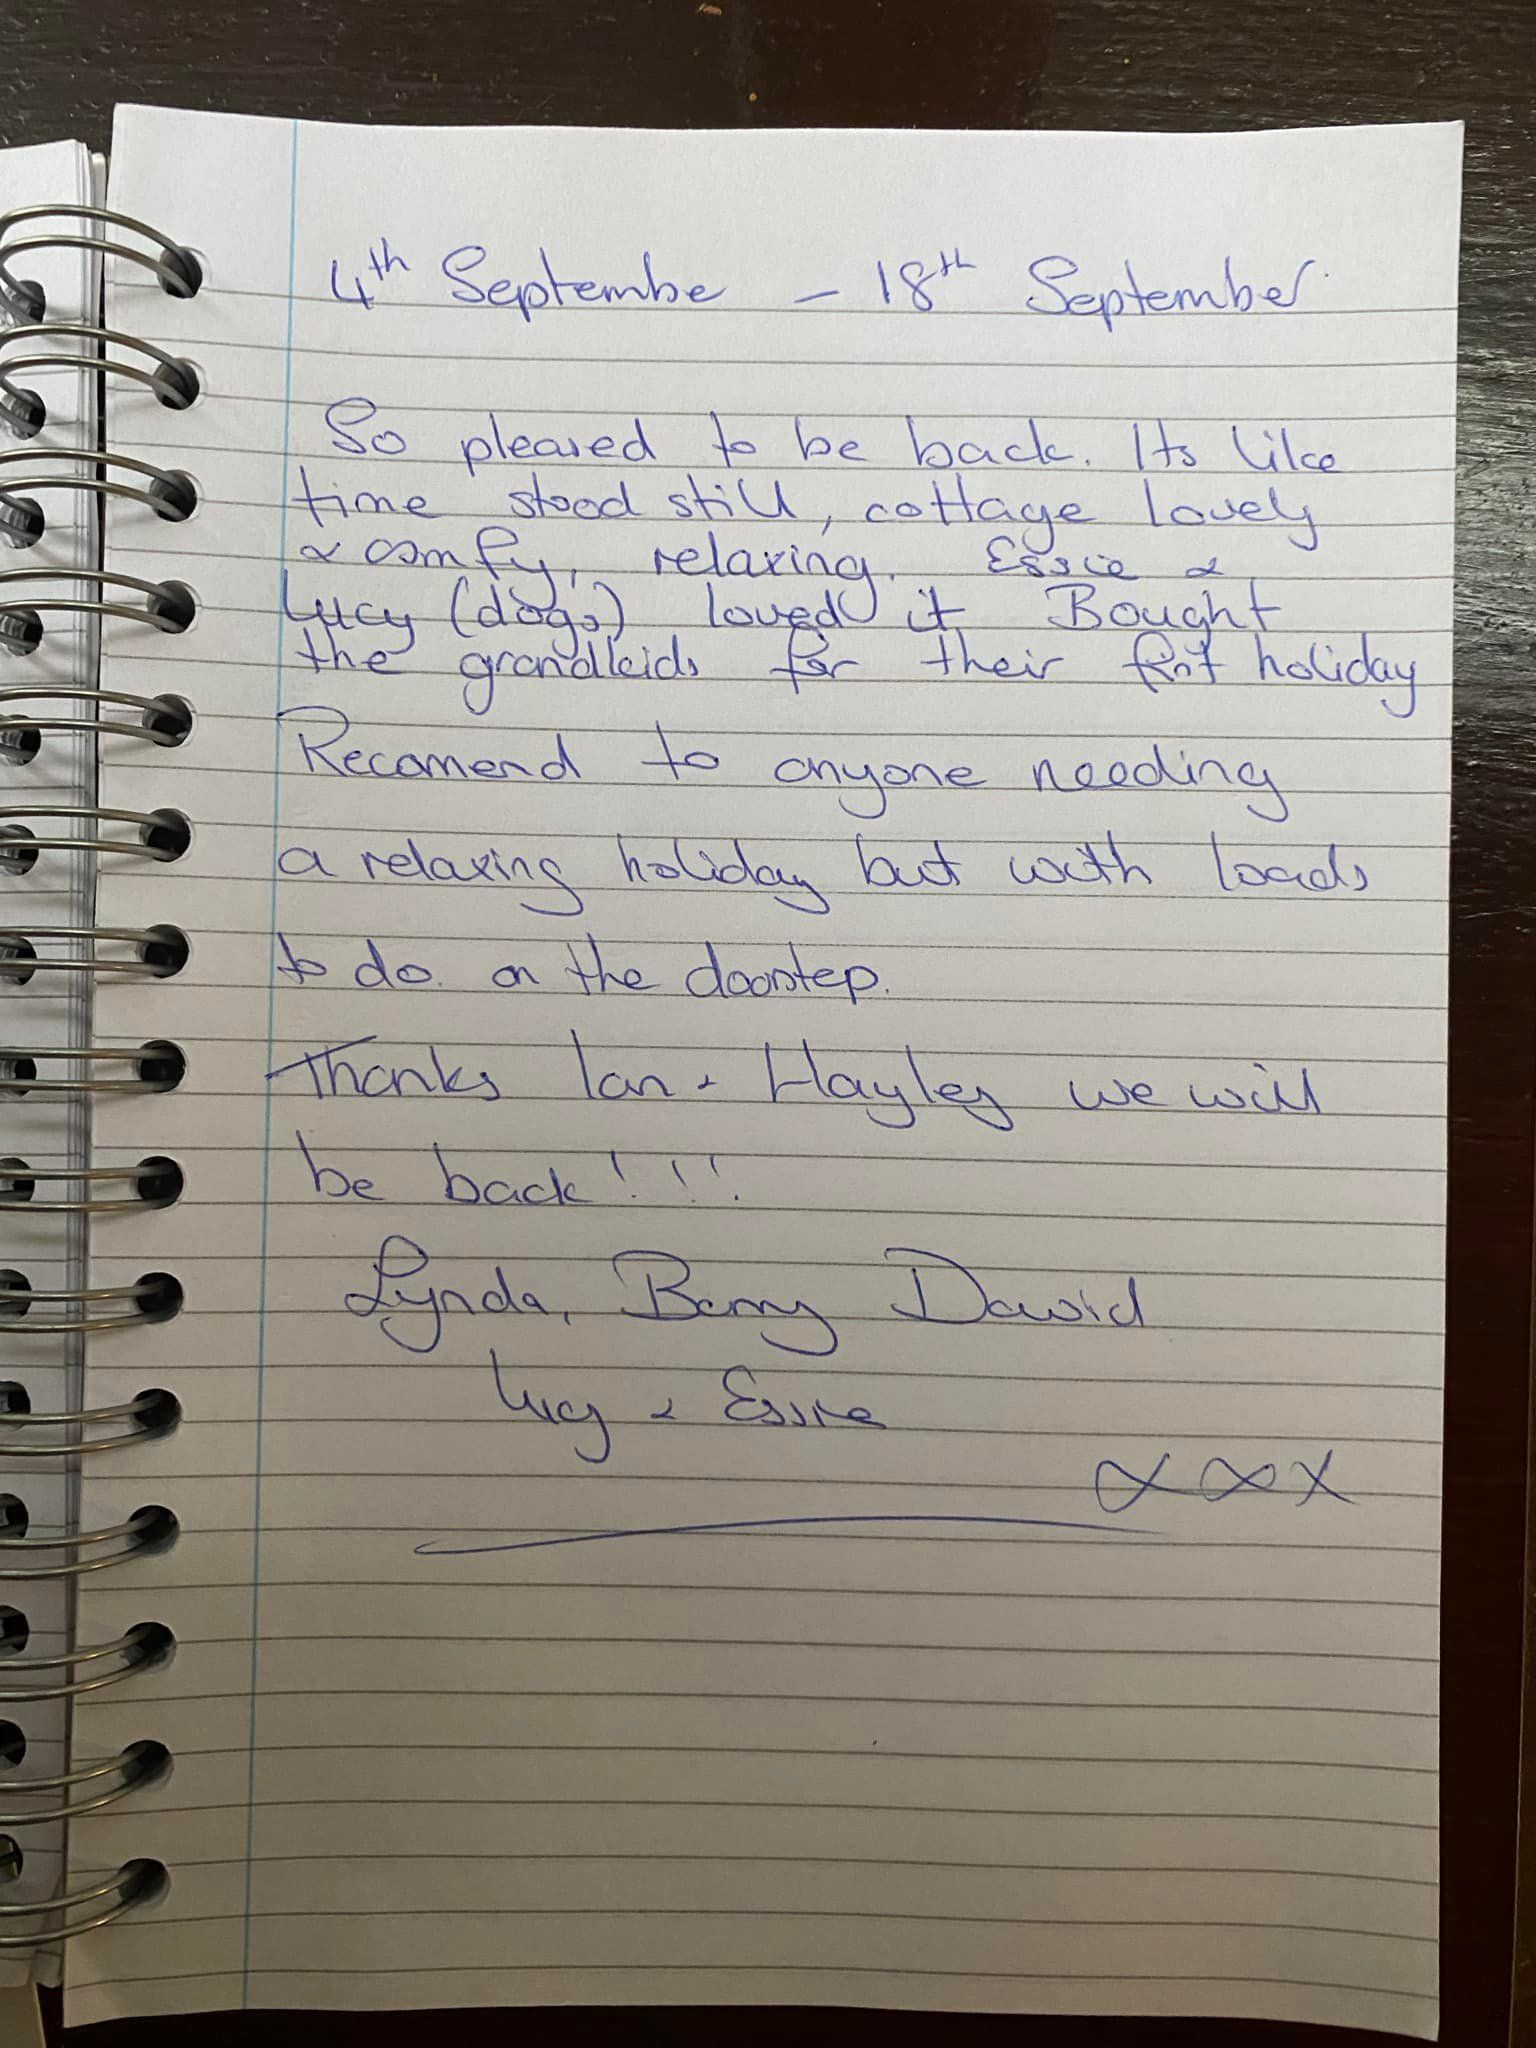 4th Septembe - 18th September.
So pleased to be back. Its like
time stood still, cottage lovely
& comfy, relaxing. Essie &
Lucy (dogs) loved it Bought
the grandkids for their first holiday
Recomend to anyone needing
a relaxing holiday but with loads
to do. on the doorstep.
Thanks Ian & Hayley we will
be back!!!
Lynda, Barry David
Lucy & Essie
xxx